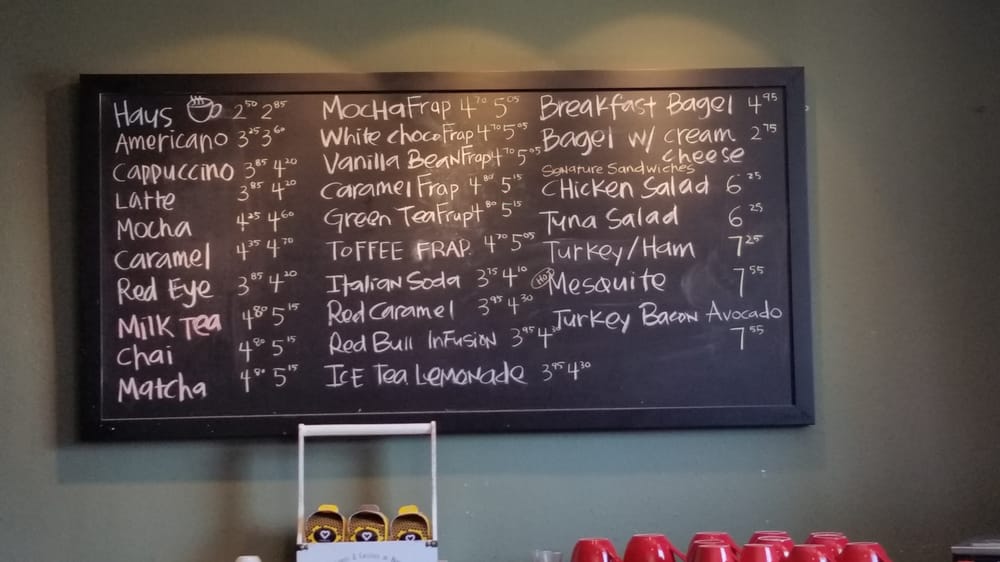 Hays 2.50 2.85
Americano 3.25 3.60
Cappuccino 3.85 4.20
Latte 3.85 4.20
Mocha 4.25 4.60
Caramel 4.35 4.70
Red Eye 3.85 4.20
Milk Tea 4.80 5.15
Chai 4.80 5.15
Matcha 4.80 5.15
Mocha Frap 4.70 5.05
White choco Frap 4.70 5.05
Vanilla Bean Frap 4.70 5.05
Caramel Frap 4.80 5.15
Green Tea Frap 4.80 5.15
TOFFEE FRAP. 4.70 5.05
Italian Soda 3.75 4.10
Red Caramel 3.95 4.30
Red Bull Infusion 3.95 4.30
ICE Tea Lemonade 3.95 4.30
Breakfast Bagel 4.95
Bagel w/ cream 2.75
cheese
Signature Sandwiches
Chicken Salad 6.25
Tuna Salad 6.25
Turkey/Ham 7.25
HOT Mesquite 7.55
Turkey Bacon Avocado
7.55